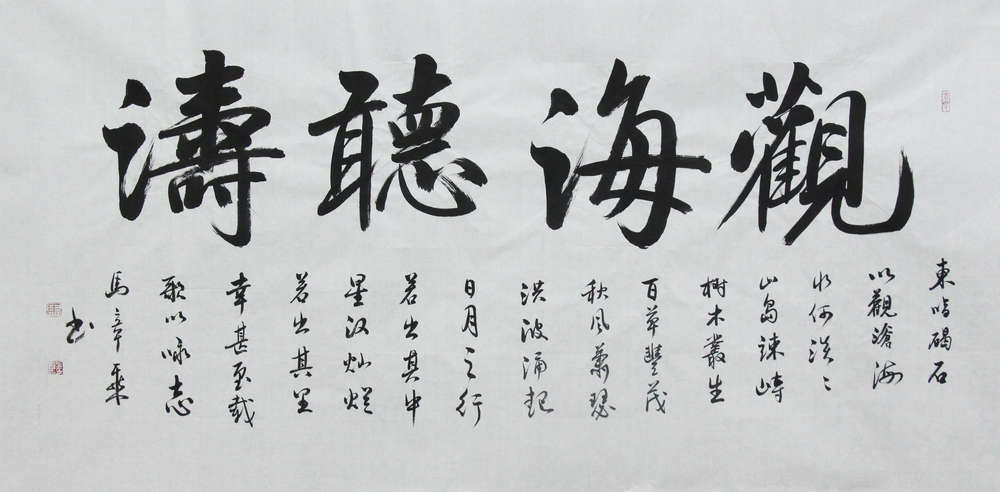 觀海聽濤
東临碣石
以觀滄海
水何淡々
山島竦峙
樹木叢生
百草豐茂
秋风蕭瑟
洪波涌起
日月之行
若出其中
星汉灿烂
若出其里
幸甚至哉
歌以咏志
馬
书